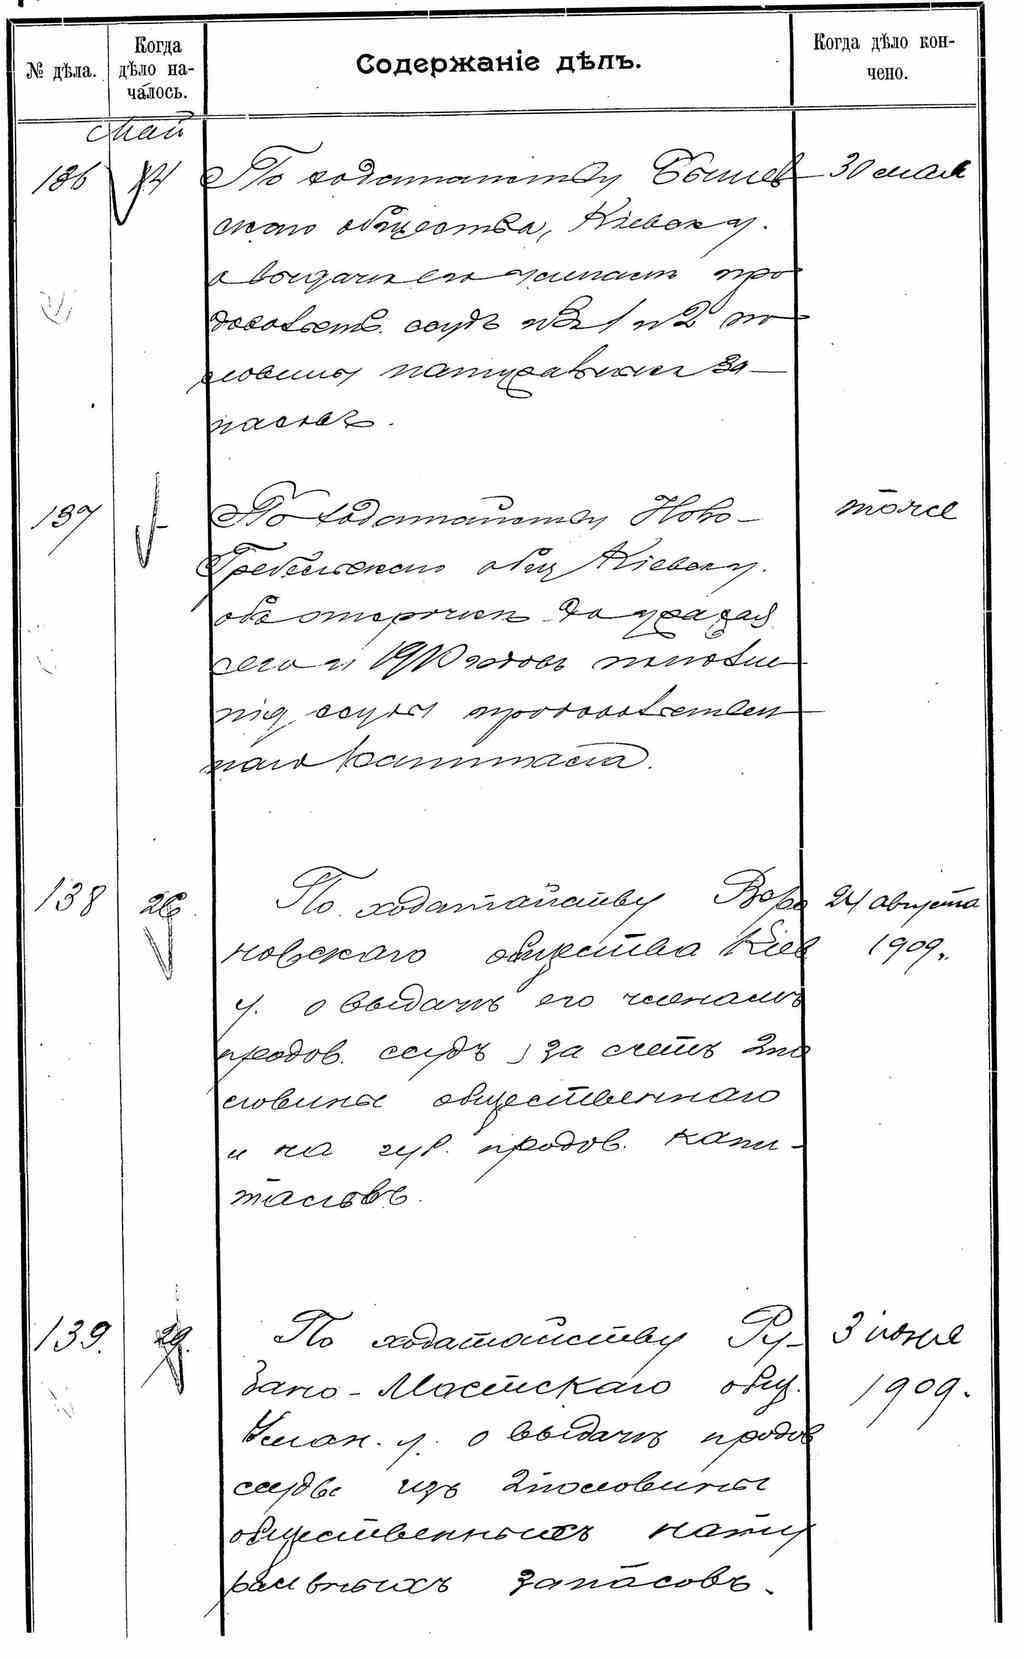 № дѣла.
Когда
дѣло на-
чалось.
Содержаніе дѣлъ.
Когда дѣло кон-
чено.
Май
136 14 По ходатайству Бышев 30 мая
скаго общества, Кіевск у.
о выдачѣ его членамъ про
довольств. ссудъ изъ 1 и 2 по
ловины натуральных за-
пасовъ.
137 По ходатайству Ново- тоже
Гребельскаго общ Кіевск у.
объ отсрочкѣ до урожая
сего и 1910 годовъ
ссуды продовольствен
наго капитала.
138 26 По ходатайству Воро 24 августа
новскаго общества Кіев 1909.
у. о выдачѣ его членамъ
продов. ссудъ за счетъ 2 по
ловины общественнаго
и на губ. продов. капи-
таловъ.
139. 29. По ходатайству Ру- 3 іюня
зано-Мостскаго общ. 1909.
Уман. у. о выдачѣ продов
ссуды изъ 2 половины
общественныхъ нату
ральныхъ запасовъ.